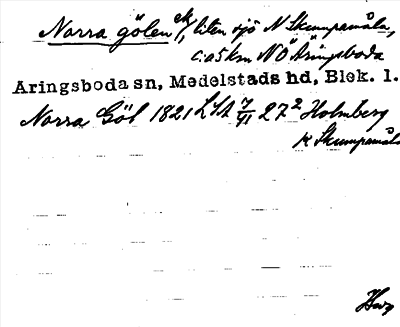 Norra gölen ek/, liten sjö N Skumpamåla,
c:a 5 km NÖ Äringsboda
Aringsboda sn, Medelstads hd, Blek. l.
Norra Göl 1821 LSA 7/VI 27² Holmberg
K Skumpamåla